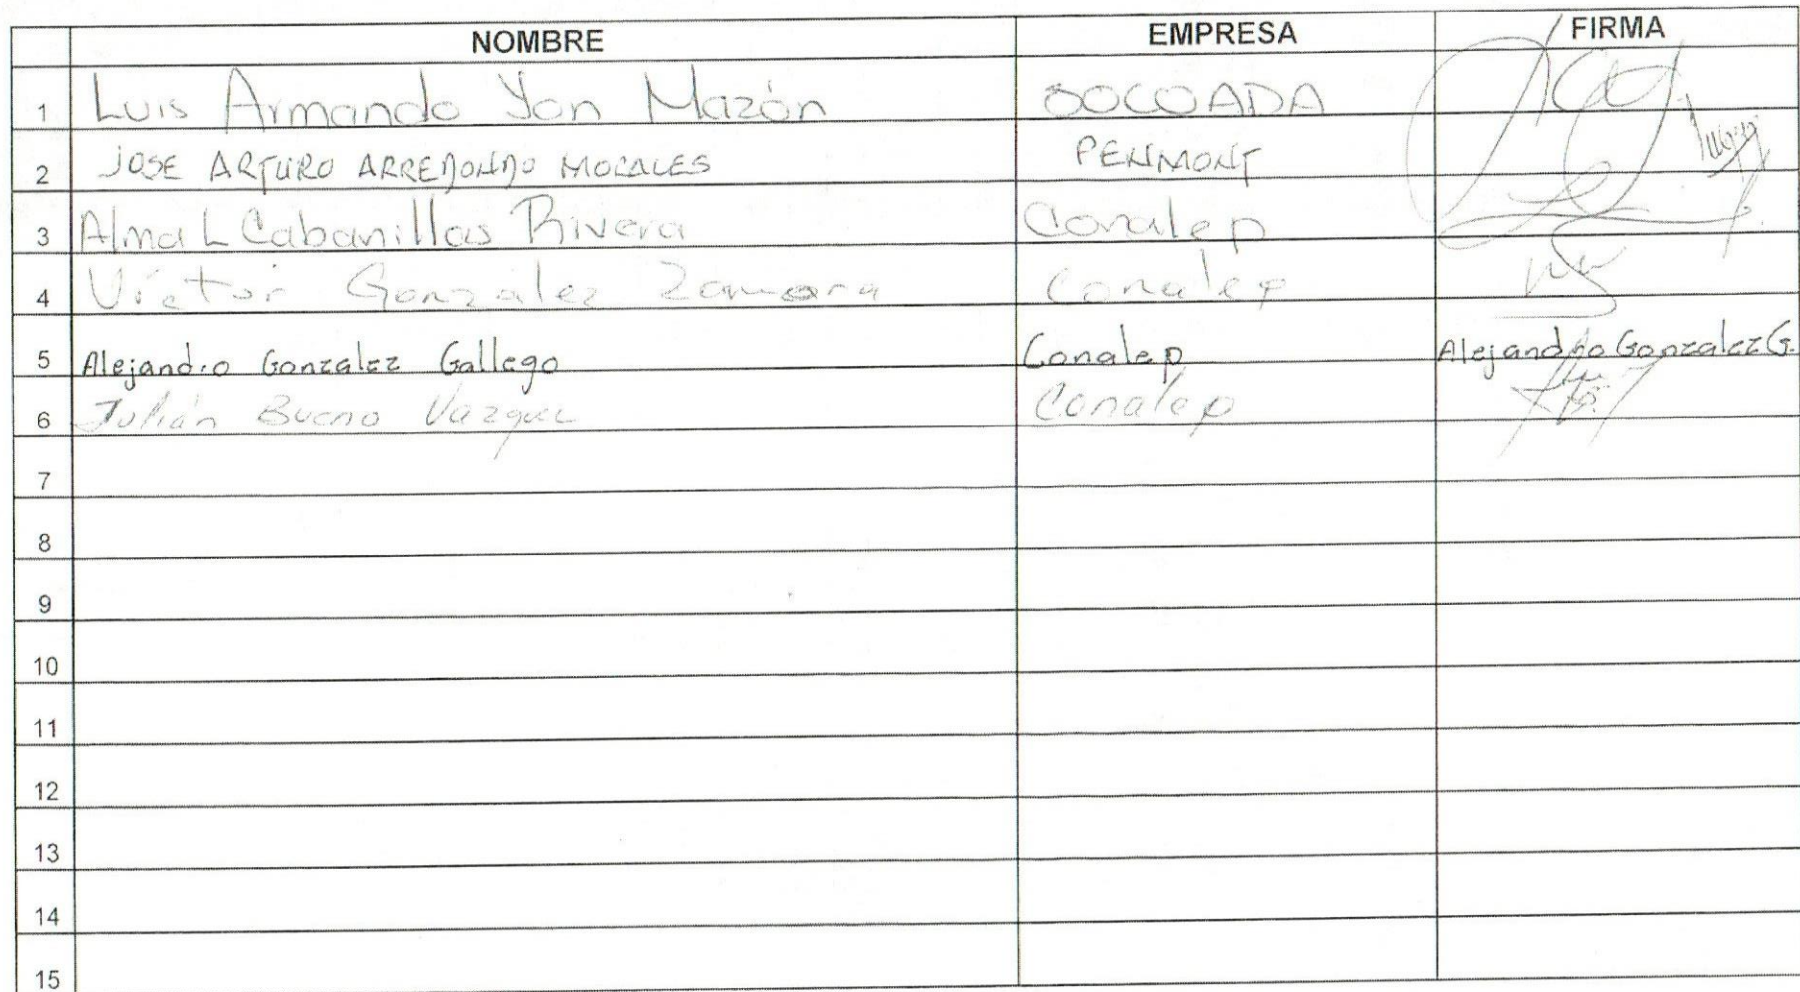 NOMBRE EMPRESA FIRMA
1 Luis Armando Yon Mazón SOCOADA
2 JOSE ARTURO ARREDONDO MORALES PENMONT
3 Alma L Cabanillas Rivera Conalep
4 Víctor González Zamora Conalep
5 Alejandro Gonzalez Gallego Conalep Alejandro Gonzalez G.
6 Julián Bueno Vazquez Conalep
7
8
9
10
11
12
13
14
15